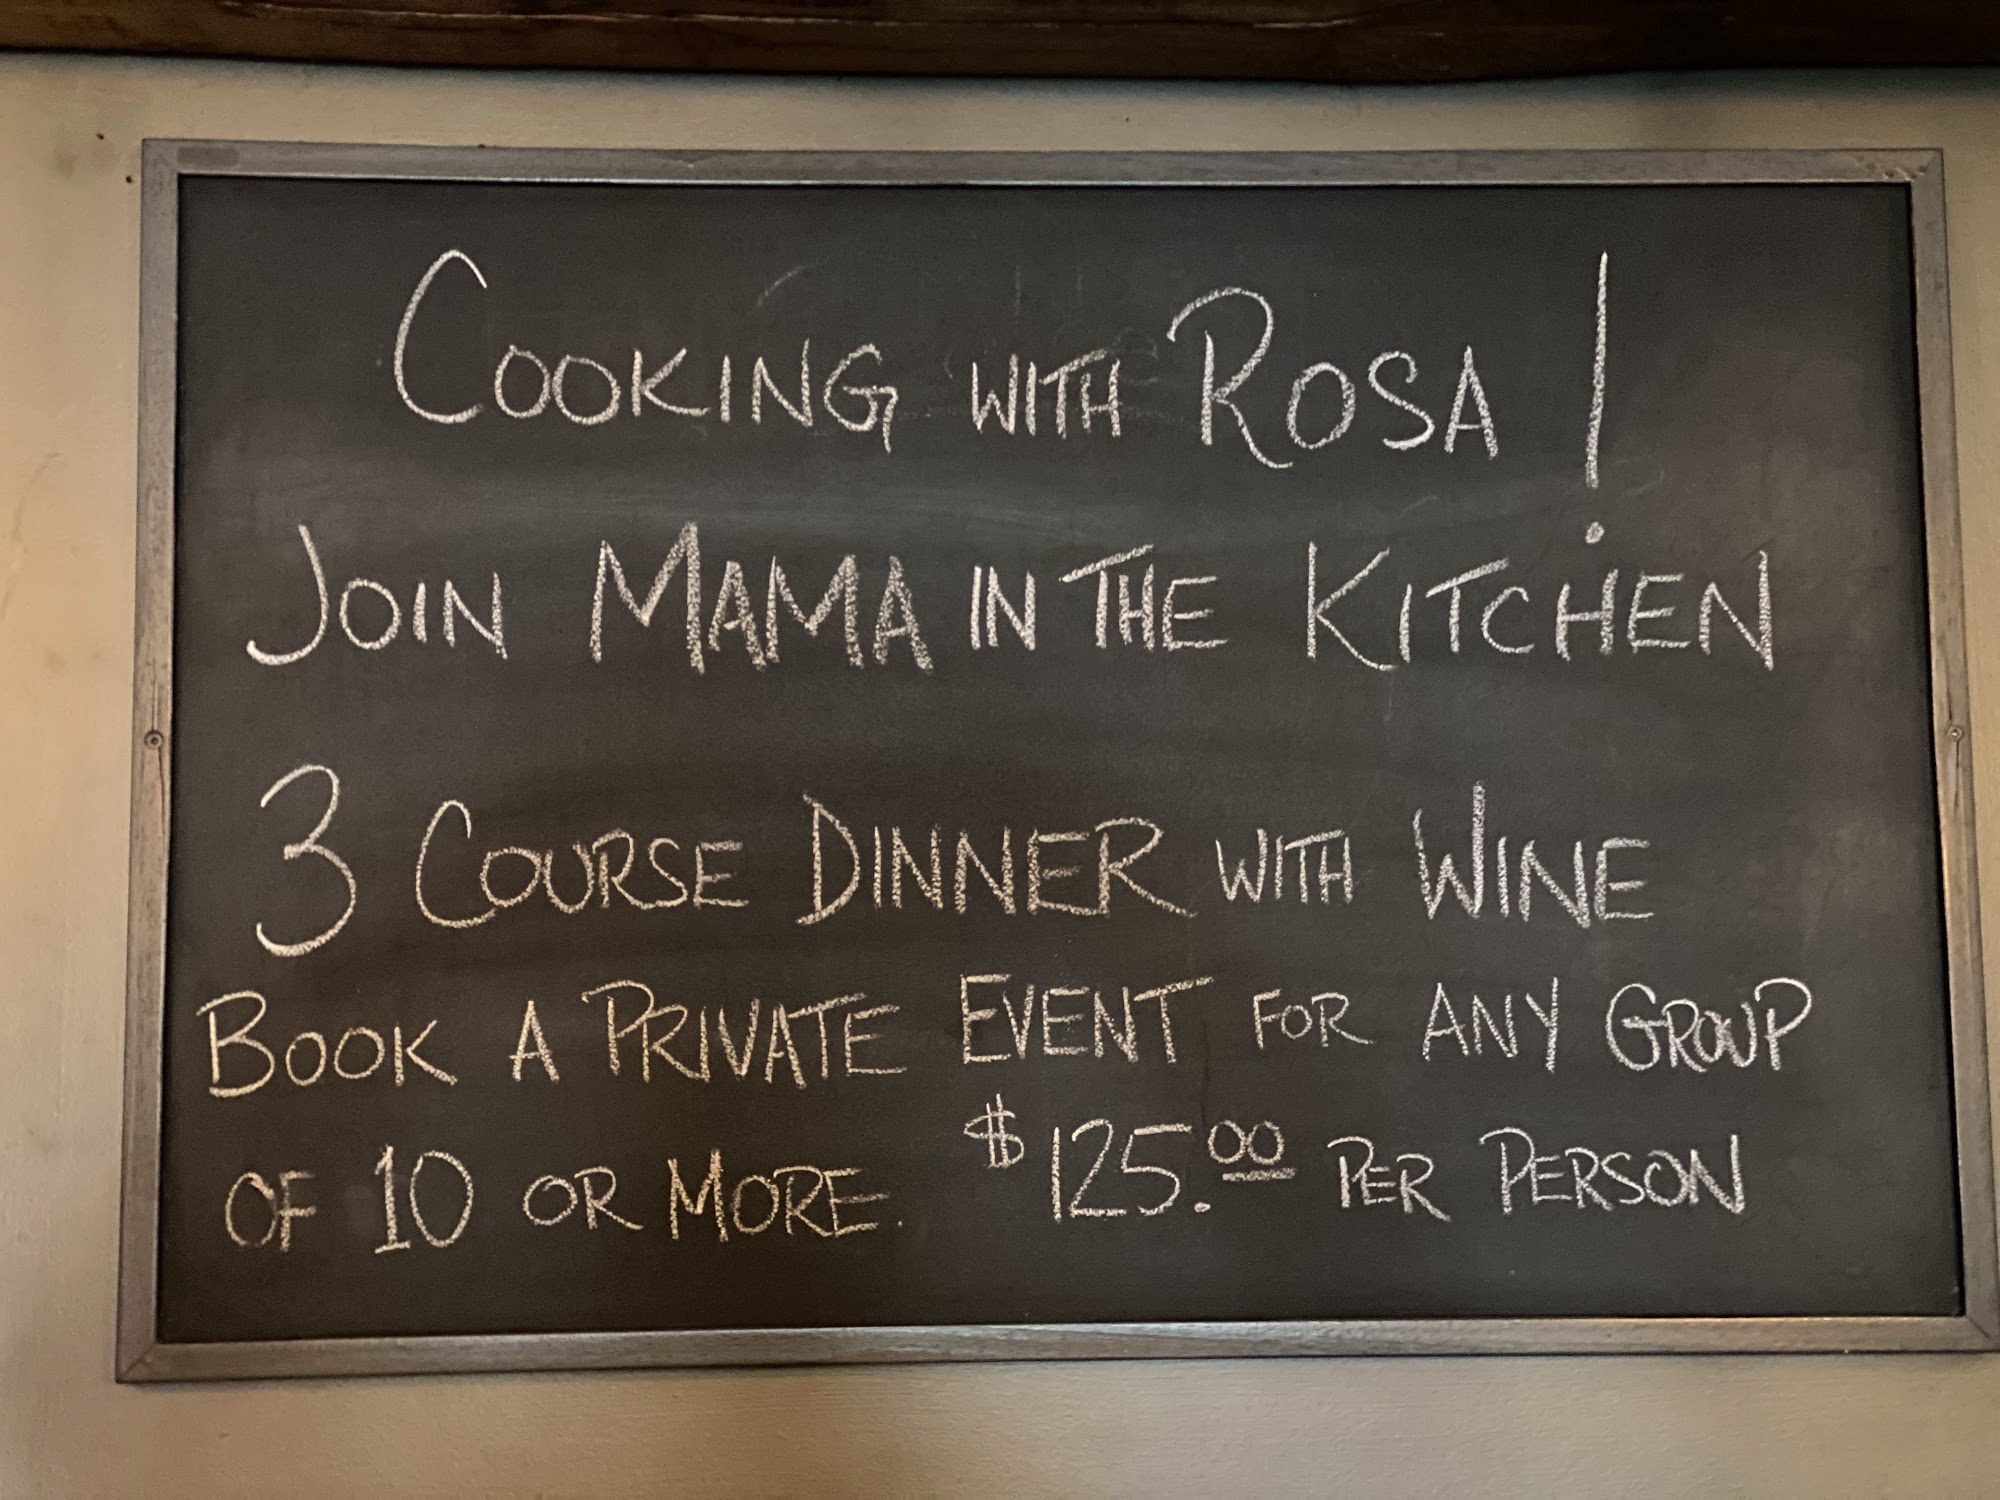 COOKING WITH ROSA!
JOIN MAMA IN THE KITCHEN
3 COURSE DINNER WITH WINE
BOOK A PRIVATE EVENT FOR ANY GROUP
OF 10 OR MORE. $125.00 PER PERSON